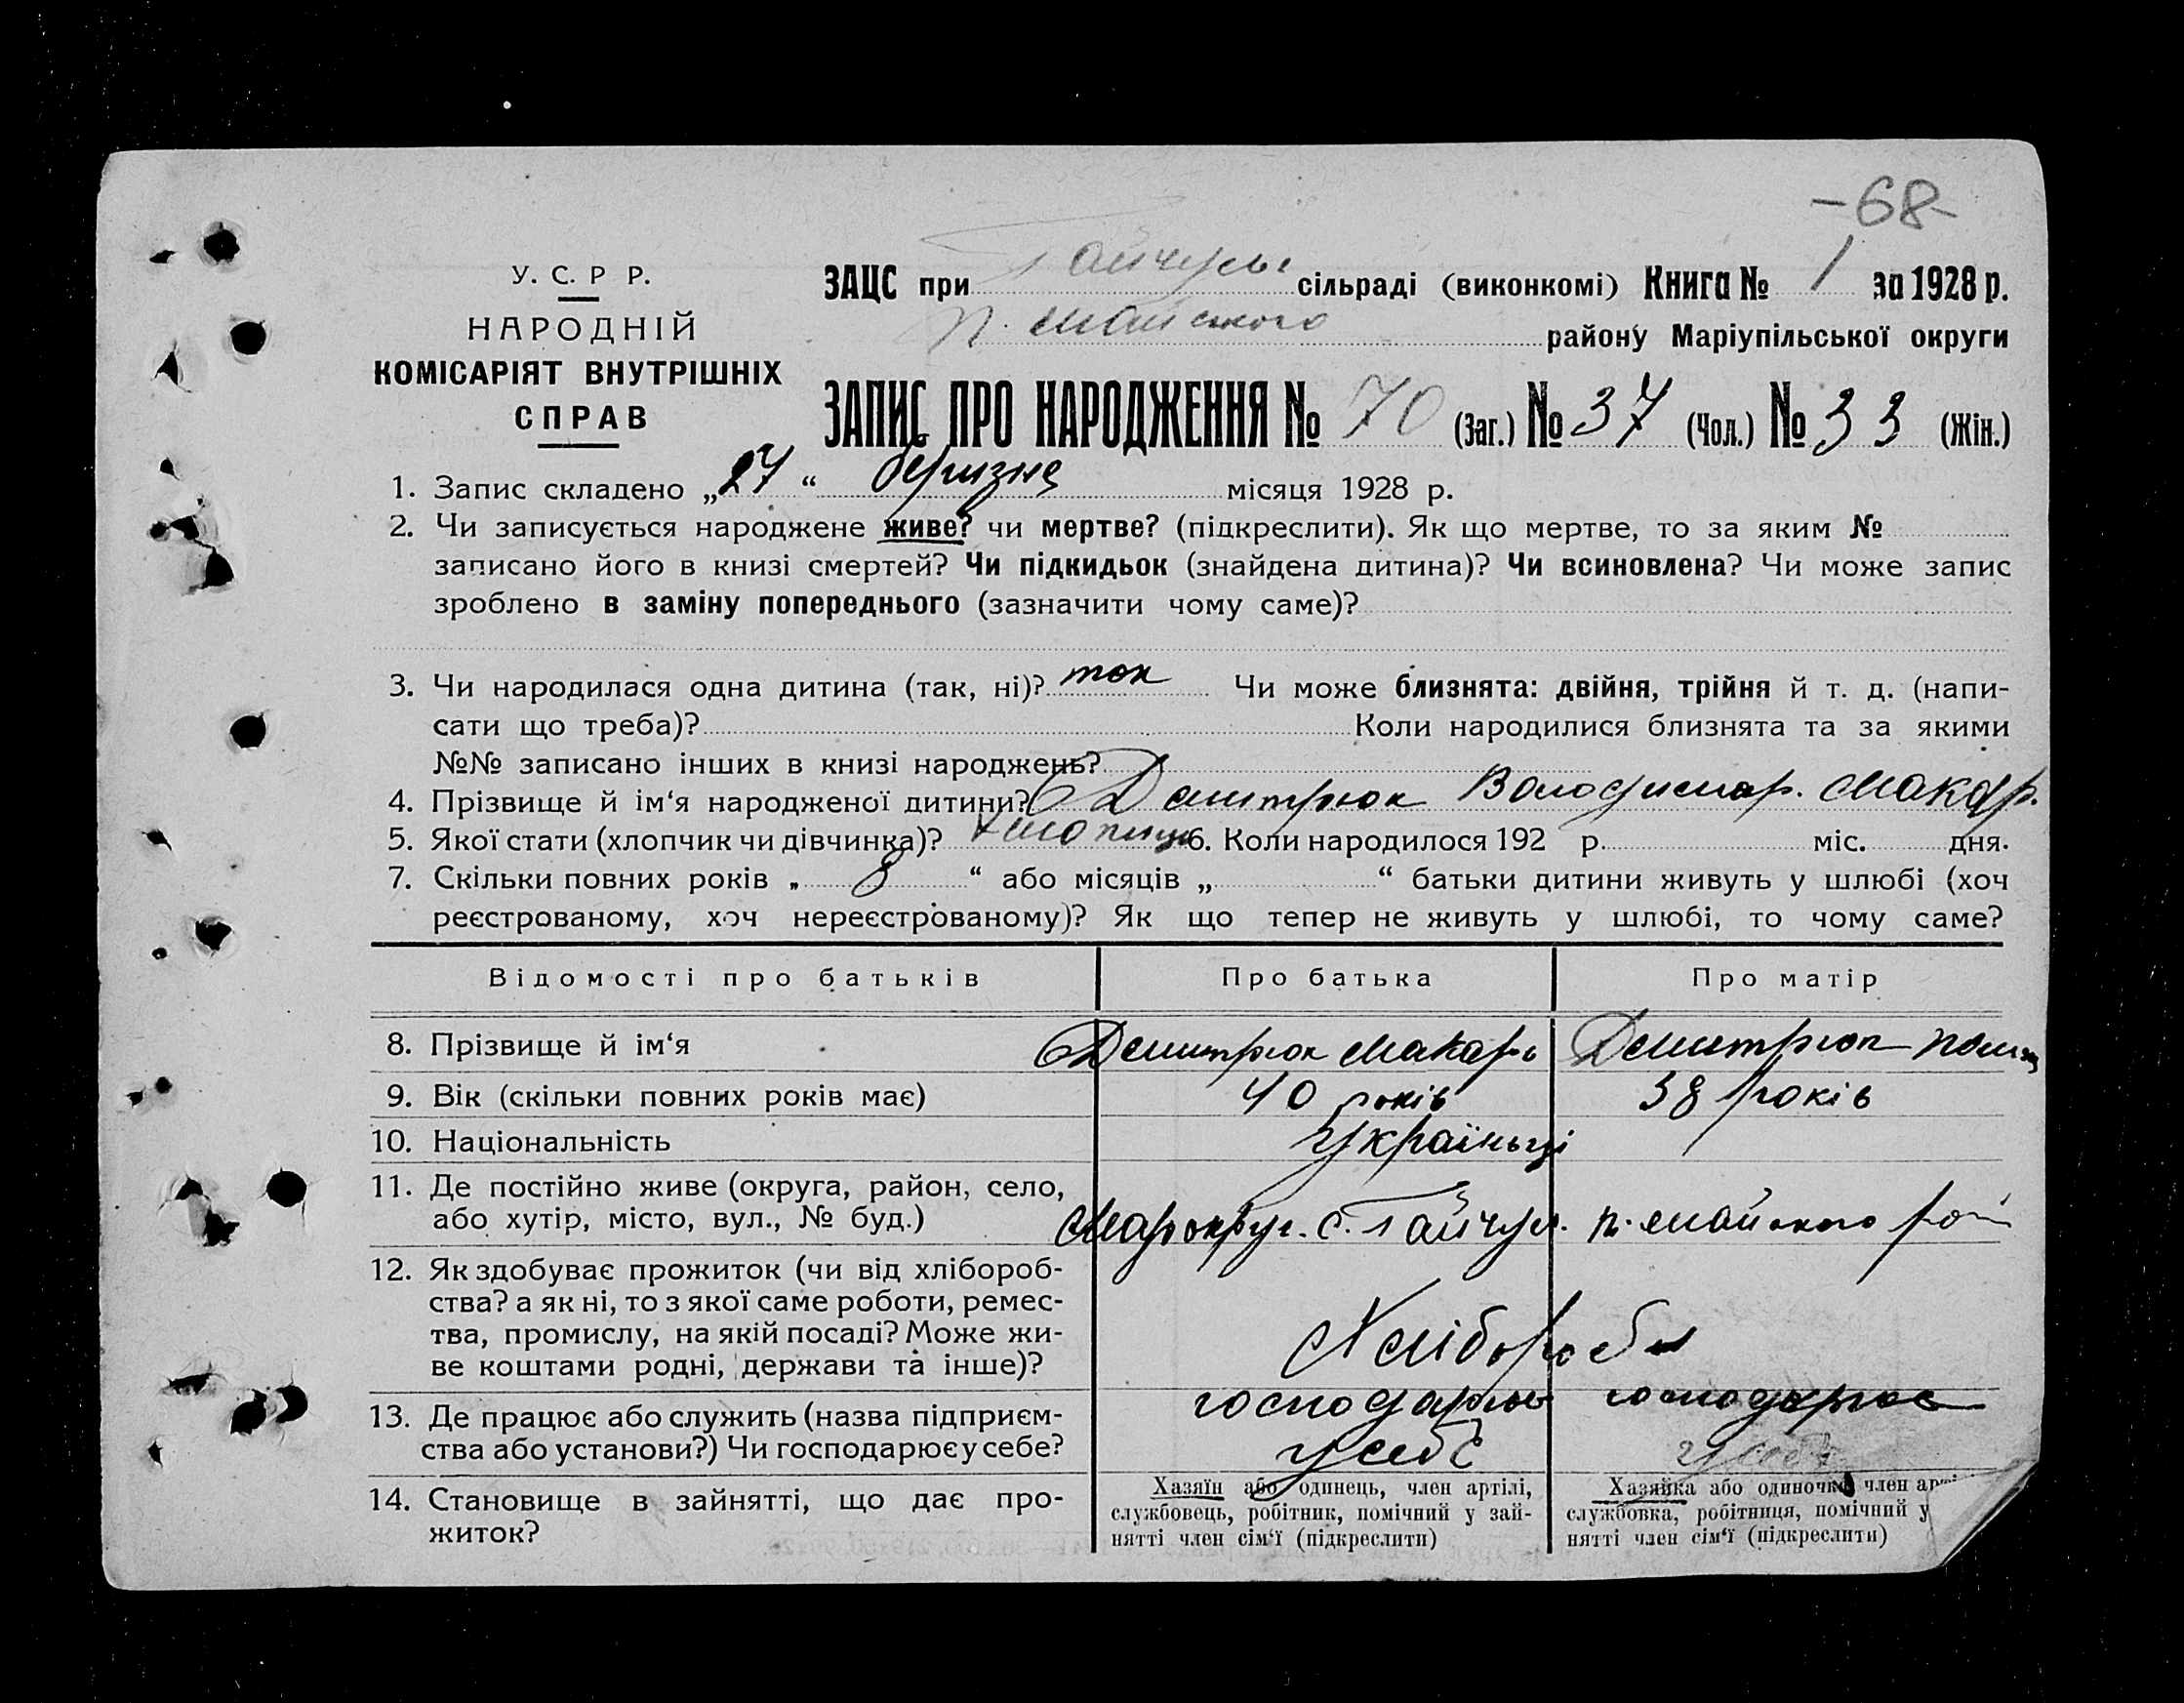 -68-
У. С. Р Р.
НАРОДНІЙ
КОМІСАРІЯТ ВНУТРІШНІХ
СПРАВ
ЗАЦС при Гайчул сільраді (виконкомі) Книга № 1 за 1928 р.
п. майського району Маріупільської округи
ЗАПИС ПРО НАРОДЖЕННЯ № 70 (Заг.) № 37 (Чол.) № 33 (Жін.)
1. Запис складено „27“ березня місяця 1928 р.
2. Чи записується народжене живе? чи мертве? (підкреслити). Як що мертве, то за яким №
записано його в книзі смертей? Чи підкидьок (знайдена дитина)? Чи всиновлена? Чи може запис
зроблено в заміну попереднього (зазначити чому саме)?
3. Чи народилася одна дитина (так, ні)? так Чи може близнята: двійня, трійня й т. д. (напи-
сати що треба)? Коли народилися близнята та за якими
№№ записано інших в книзі народжень?
4. Прізвище й ім‘я народженої дитини? Дмитрюк Володимир. Макар.
5. Якої стати (хлопчик чи дівчинка)? 6. Коли народилося 192 р. міс. дня.
7. Скільки повних років „ 8 “ або місяців „ “ батьки дитини живуть у шлюбі (хоч
реєстрованому, хоч нереєстрованому)? Як що тепер не живуть у шлюбі, то чому саме?
Відомості про батьків Про батька Про матір
8. Прізвище й ім‘я Дмитрюк Макарь Дмитрюк
9. Вік (скільки повних років має) 40 років 38 років
10. Національність Україньці
11. Де постійно живе (округа, район, село,
або хутір, місто, вул., № буд.) Мар округ. с. Гайчул. п. майского рай
12. Як здобуває прожиток (чи від хлібороб-
ства? а як ні, то з якої саме роботи, ремес-
тва, промислу, на якій посаді? Може жи-
ве коштами родні, держави та інше)? Хлібороби
13. Де працює або служить (назва підприєм-
ства або установи?) Чи господарює у себе? господарює у себе господарює у себе
14. Становище в зайнятті, що дає про-
житок?
Хазяїн або одинець, член артілі,
службовець, робітник, помічний у зай-
нятті член сім‘ї (підкреслити)
Хазяйка або одиночка член арті
службовка, робітниця, помічний у
нятті член сім‘ї (підкреслити)